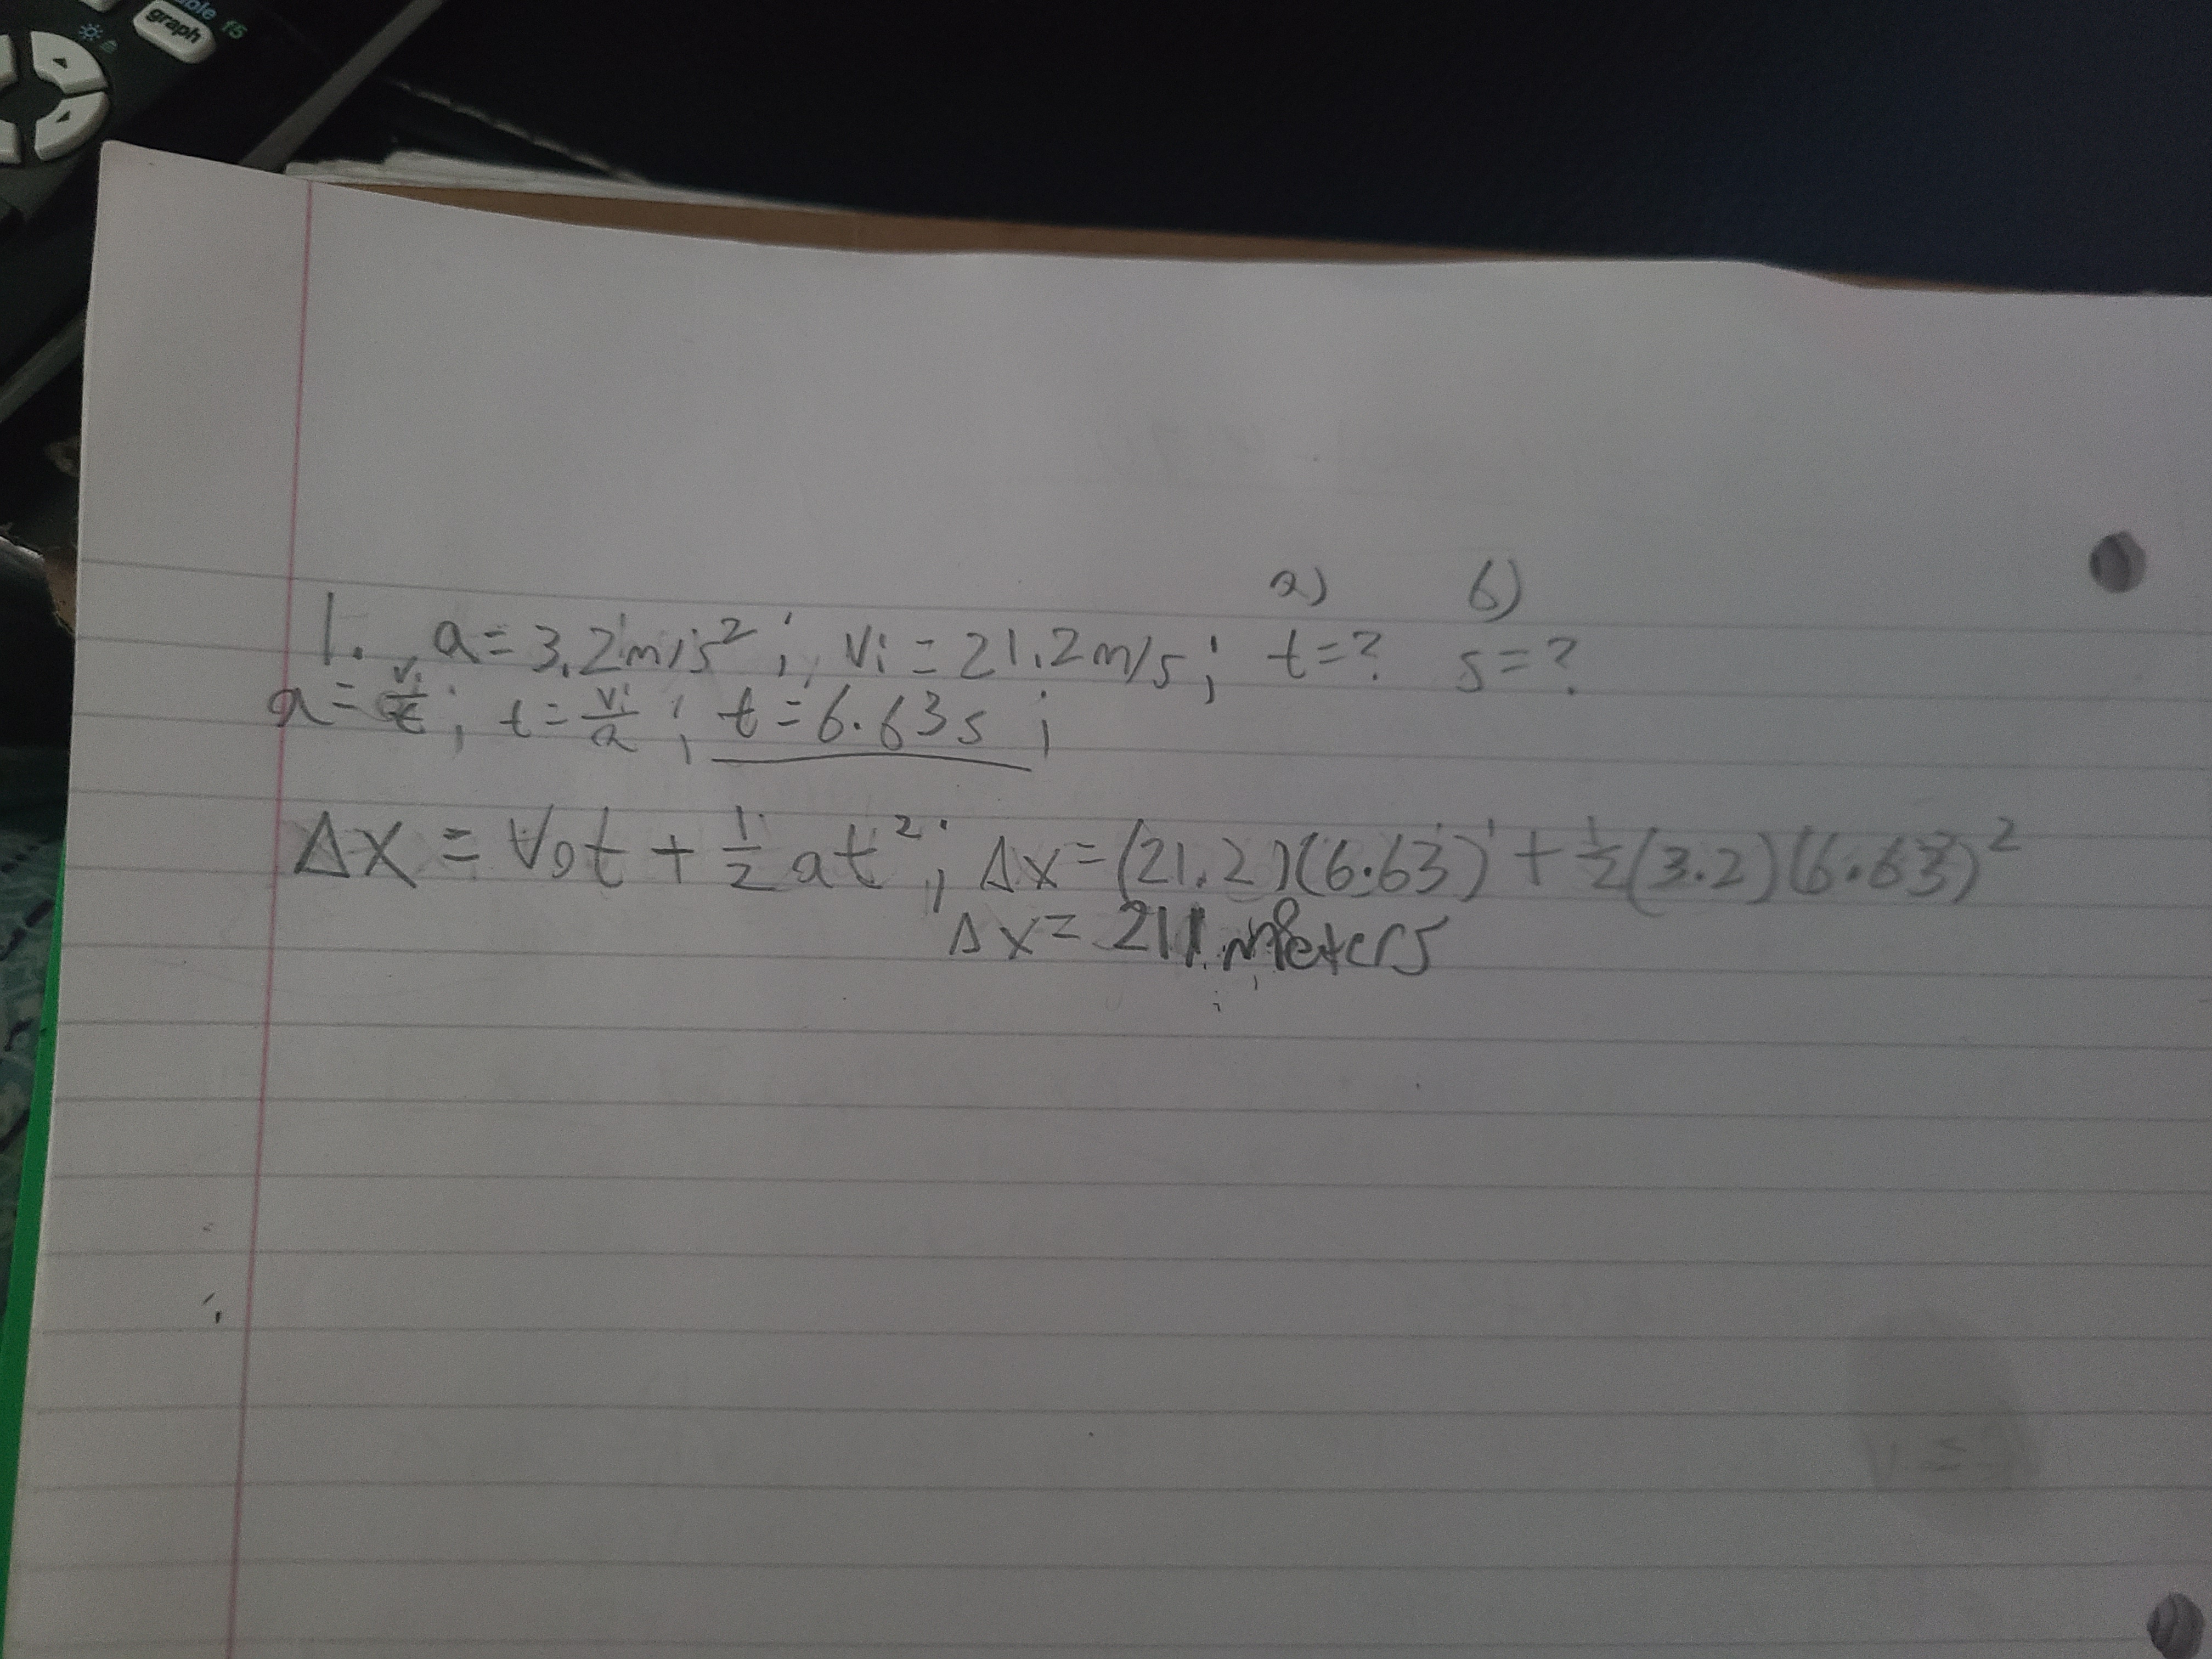 graph f5
a) b)
1. a=3.2m/s²; Vi=21.2m/s; t=? s=?
a=Vi/t; t=Vi/a; t=6.63s;
Δx = V₀t + 1/2 at²; Δx=(21.2)(6.63)+1/2(3.2)(6.63)²
Δx= 211 meters